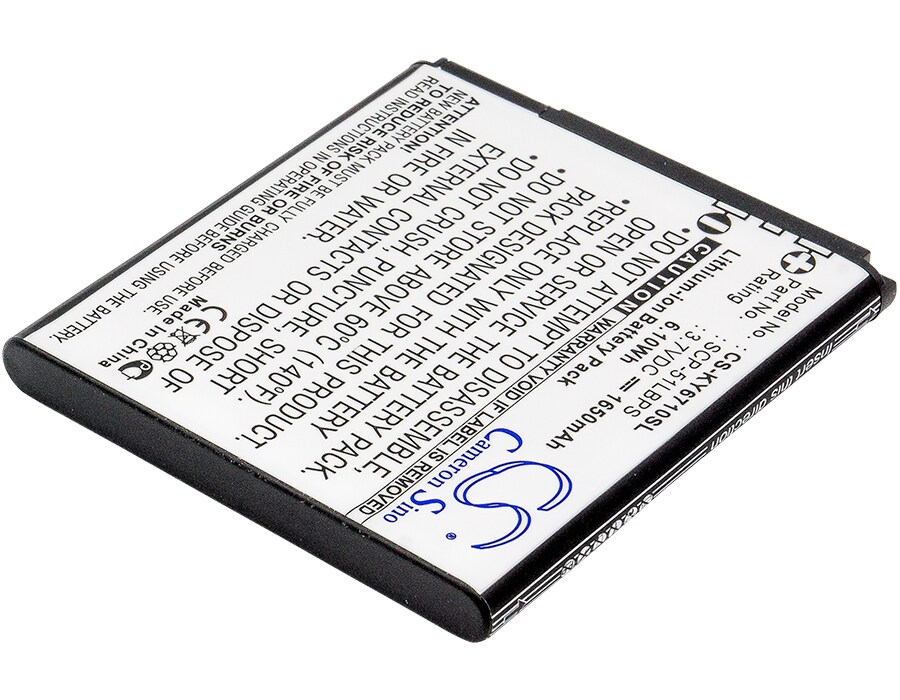 Model No.: CS-KY6710SL
Part No.: SCP-51LBPS
Rating: 3.7VDC 1650mAh
6.10Wh
Lithium-ion Battery Pack
CAUTION
WARRANTY VOID IF LABEL IS REMOVED
•DO NOT ATTEMPT TO DISASSEMBLE,
OPEN OR SERVICE THE BATTERY PACK
•REPLACE ONLY WITH THE BATTERY
PACK DESIGNATED FOR THIS PRODUCT
•DO NOT STORE ABOVE 60°C (140°F)
•DO NOT CRUSH, PUNCTURE, SHORT
EXTERNAL CONTACTS OR DISPOSE OF
IN FIRE OR WATER.
ATTENTION!
NEW BATTERY PACK MUST BE FULLY CHARGED BEFORE USE.
TO REDUCE RISK OF FIRE OR BURNS
READ INSTRUCTIONS IN OPERATING GUIDE BEFORE USING THE BATTERY.
CE
Made in China
CS
Cameron Sino
®